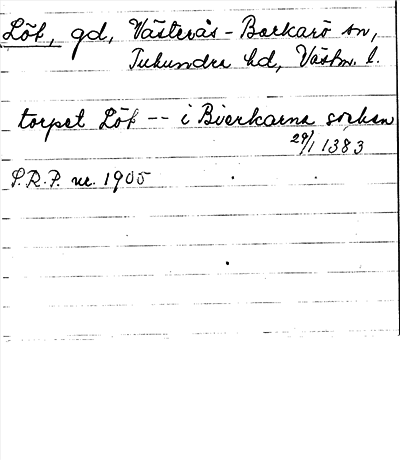 Lök, gd, Västerås-Barkarö sn,
Tuhundra hd, Västm. l.
torpet Lök -- i Bierkarna sokn
29/1 1383
S.R.P. nr. 1905